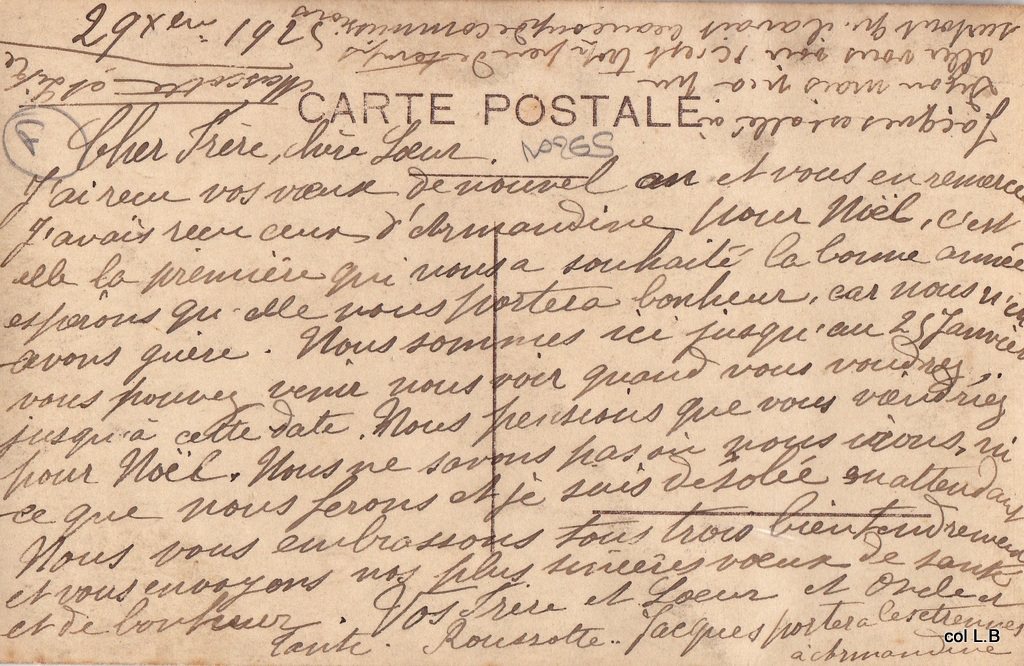 29 xbre 1926
CARTE POSTALE
Cher Frère, chère Sœur.
J'ai reçu vos vœux de nouvel an et vous en remercie
J'avais reçu ceux d'Armandine pour Noël, c'est
elle la première qui nous a souhaité la bonne année
espérons qu'elle nous portera bonheur, car nous n'en
avons guère. Nous sommes ici jusqu'au 25 Janvier
vous pouvez venir nous voir quand vous voudrez,
jusqu'à cette date. Nous pensions que vous viendriez
pour Noël. Nous ne savons pas où nous irons, ni
ce que nous ferons et je suis désolée en attendant
Nous vous embrassons tous trois bien tendrement
et vous envoyons nos plus sincères vœux de santé
et de bonheur. Vos Frère et Sœur et Oncle et
Tante. Roussotte.. Jacques portera les étrennes
à Armandine
Jacques est allé à
Dijon mais n'a pu
aller vous voir c'est trop peu de temps
surtout qu'il avait beaucoup de commissions
col L.B